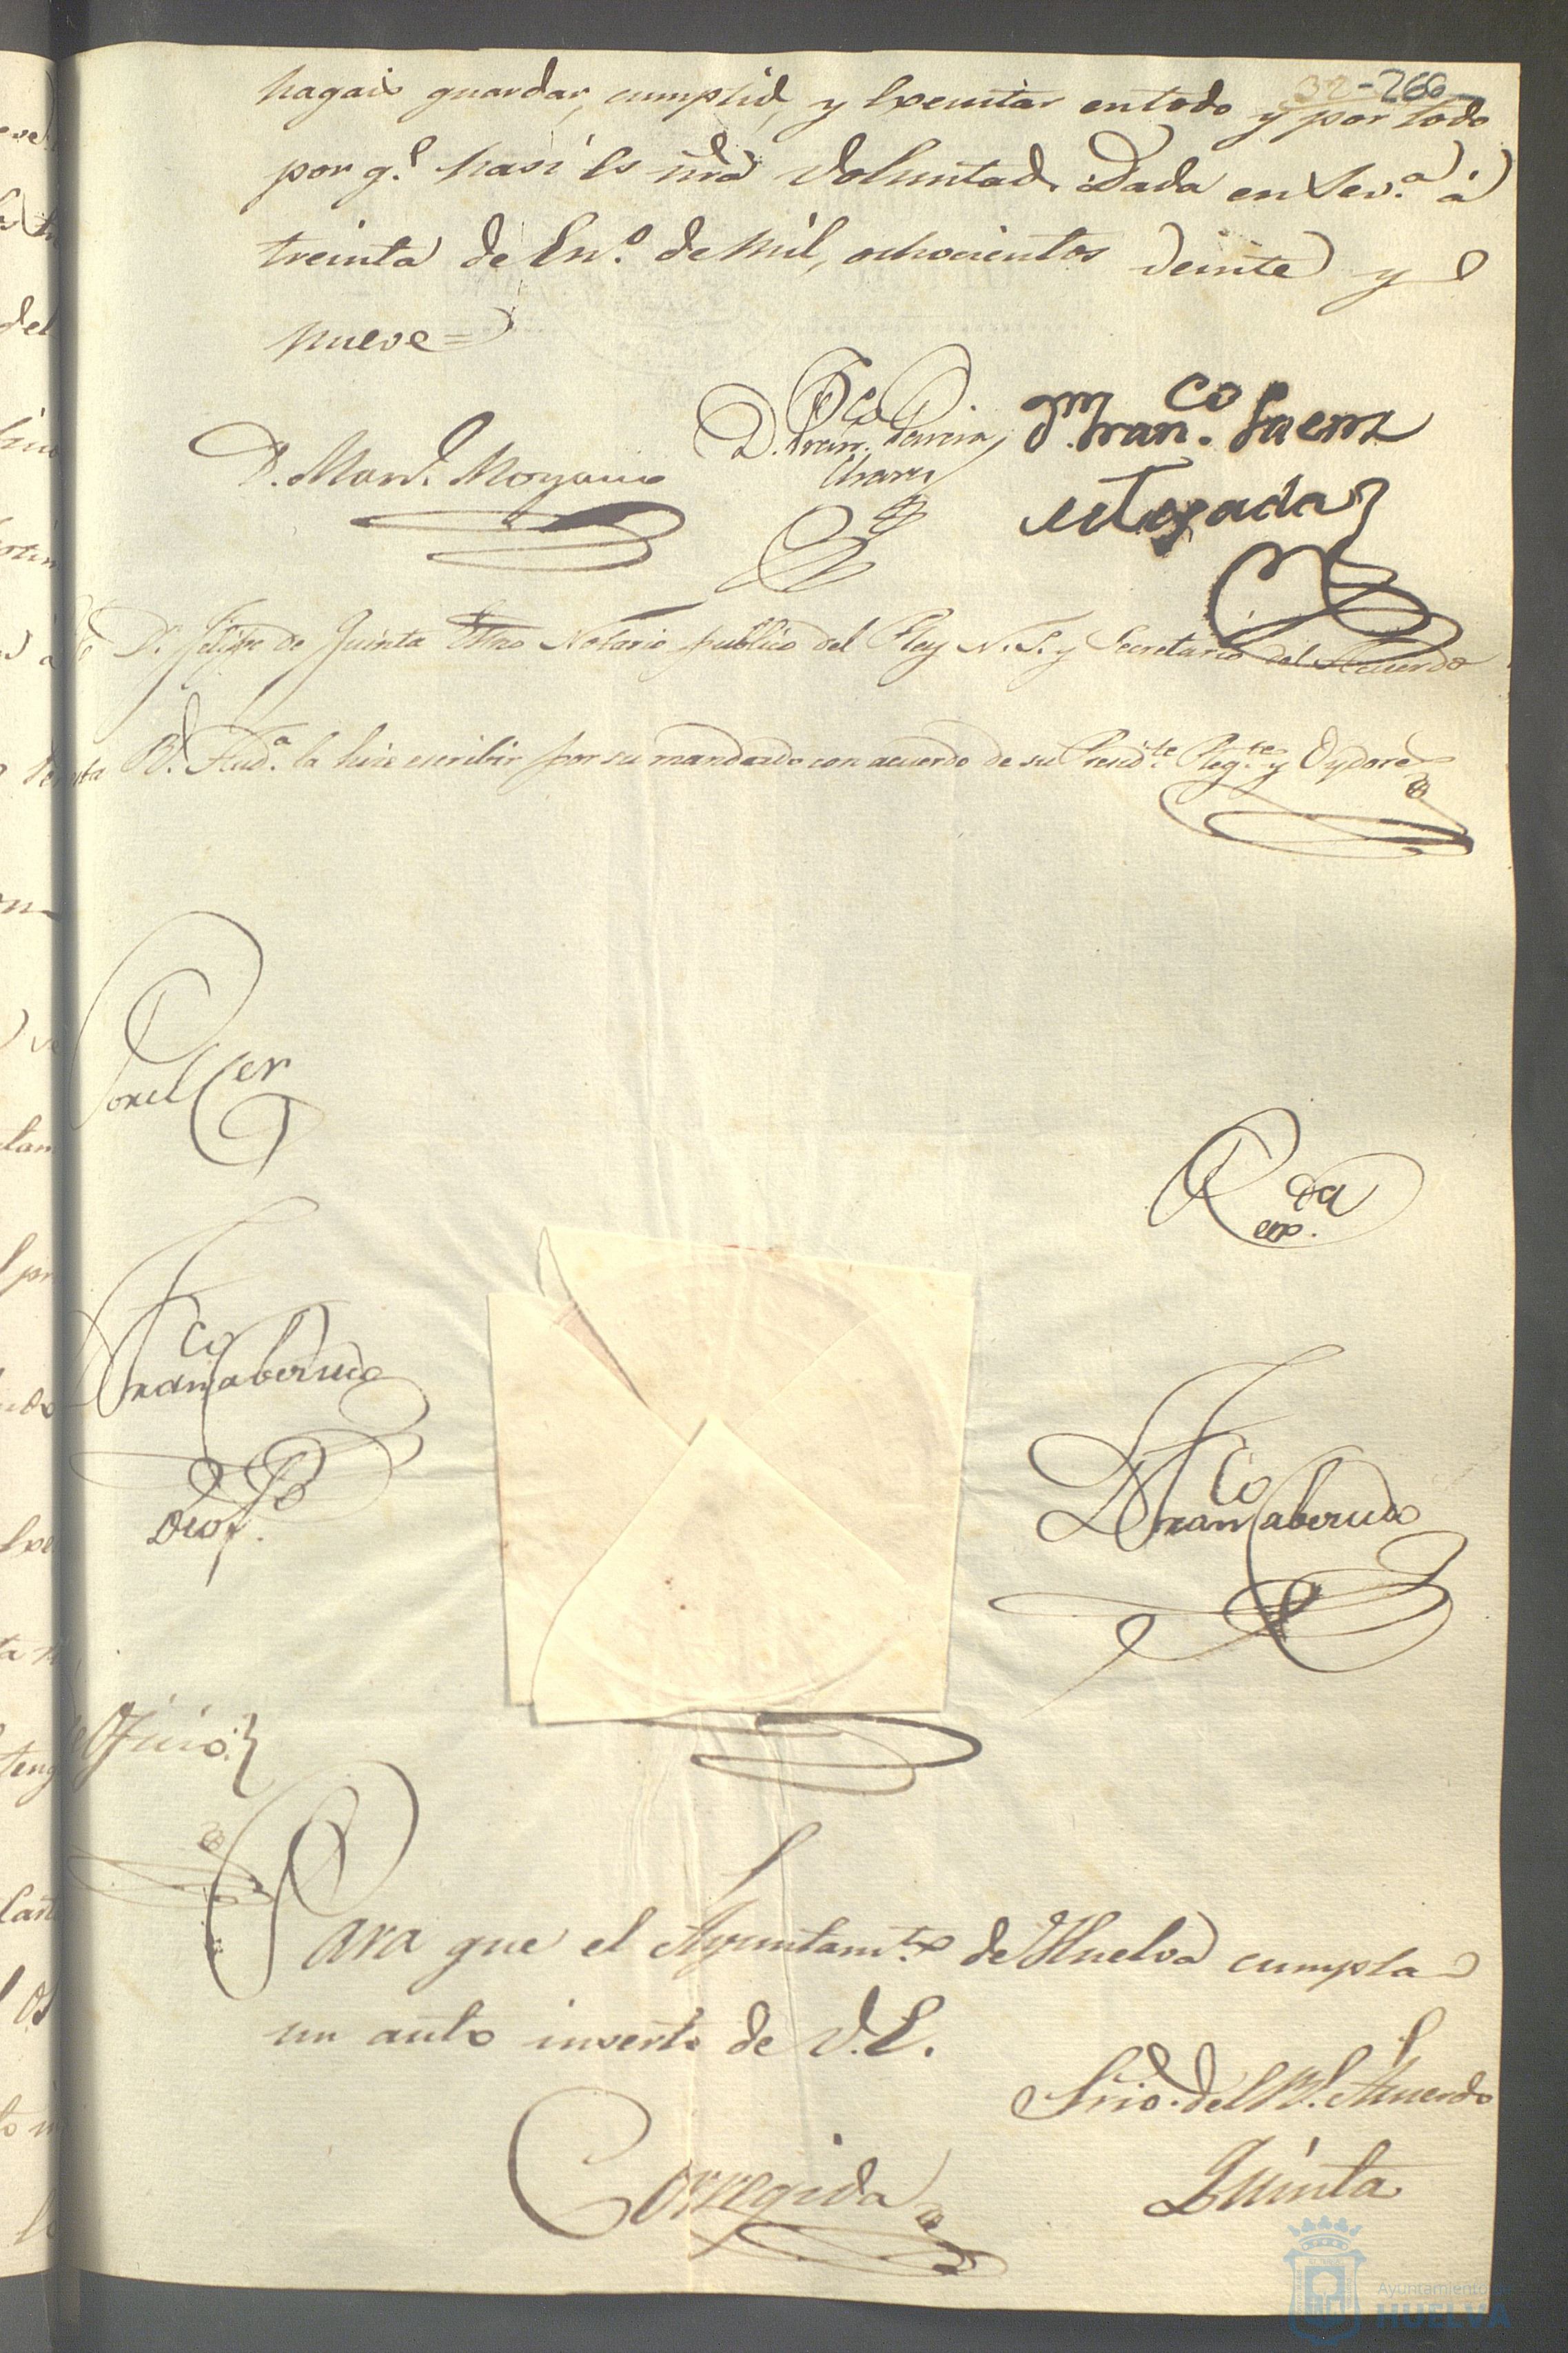 32-260
hagais guardar, cumplid, y Executar en todo y por todo
por q.e hasi Es nrã Voluntad. Dada en Sev.a á
treinta de En.o de mil, ochocientos veinte y
nueve =
D. Man.l Moyano
D. Fran.co Garcia
Chaves
D.n Fran.co Saenz
de Texada
D.n Felipe de Quinta Esno Notario publico del Rey N. S. y Secretario del Acuerdo
R.l Aud.a la hize escribir por su mandado con acuerdo de su Presid.te Reg.te y Oydores
Por el Cer
R.da
en.
Fran.co Caberudo
Fran.co Caberudo
Oficio
Para que el Ayuntam.to de Huelva cumpla
un auto inserto de V.E.
Srio. del R.l Acuerdo
Quinta
Corregida
Ayuntamiento de
HUELVA